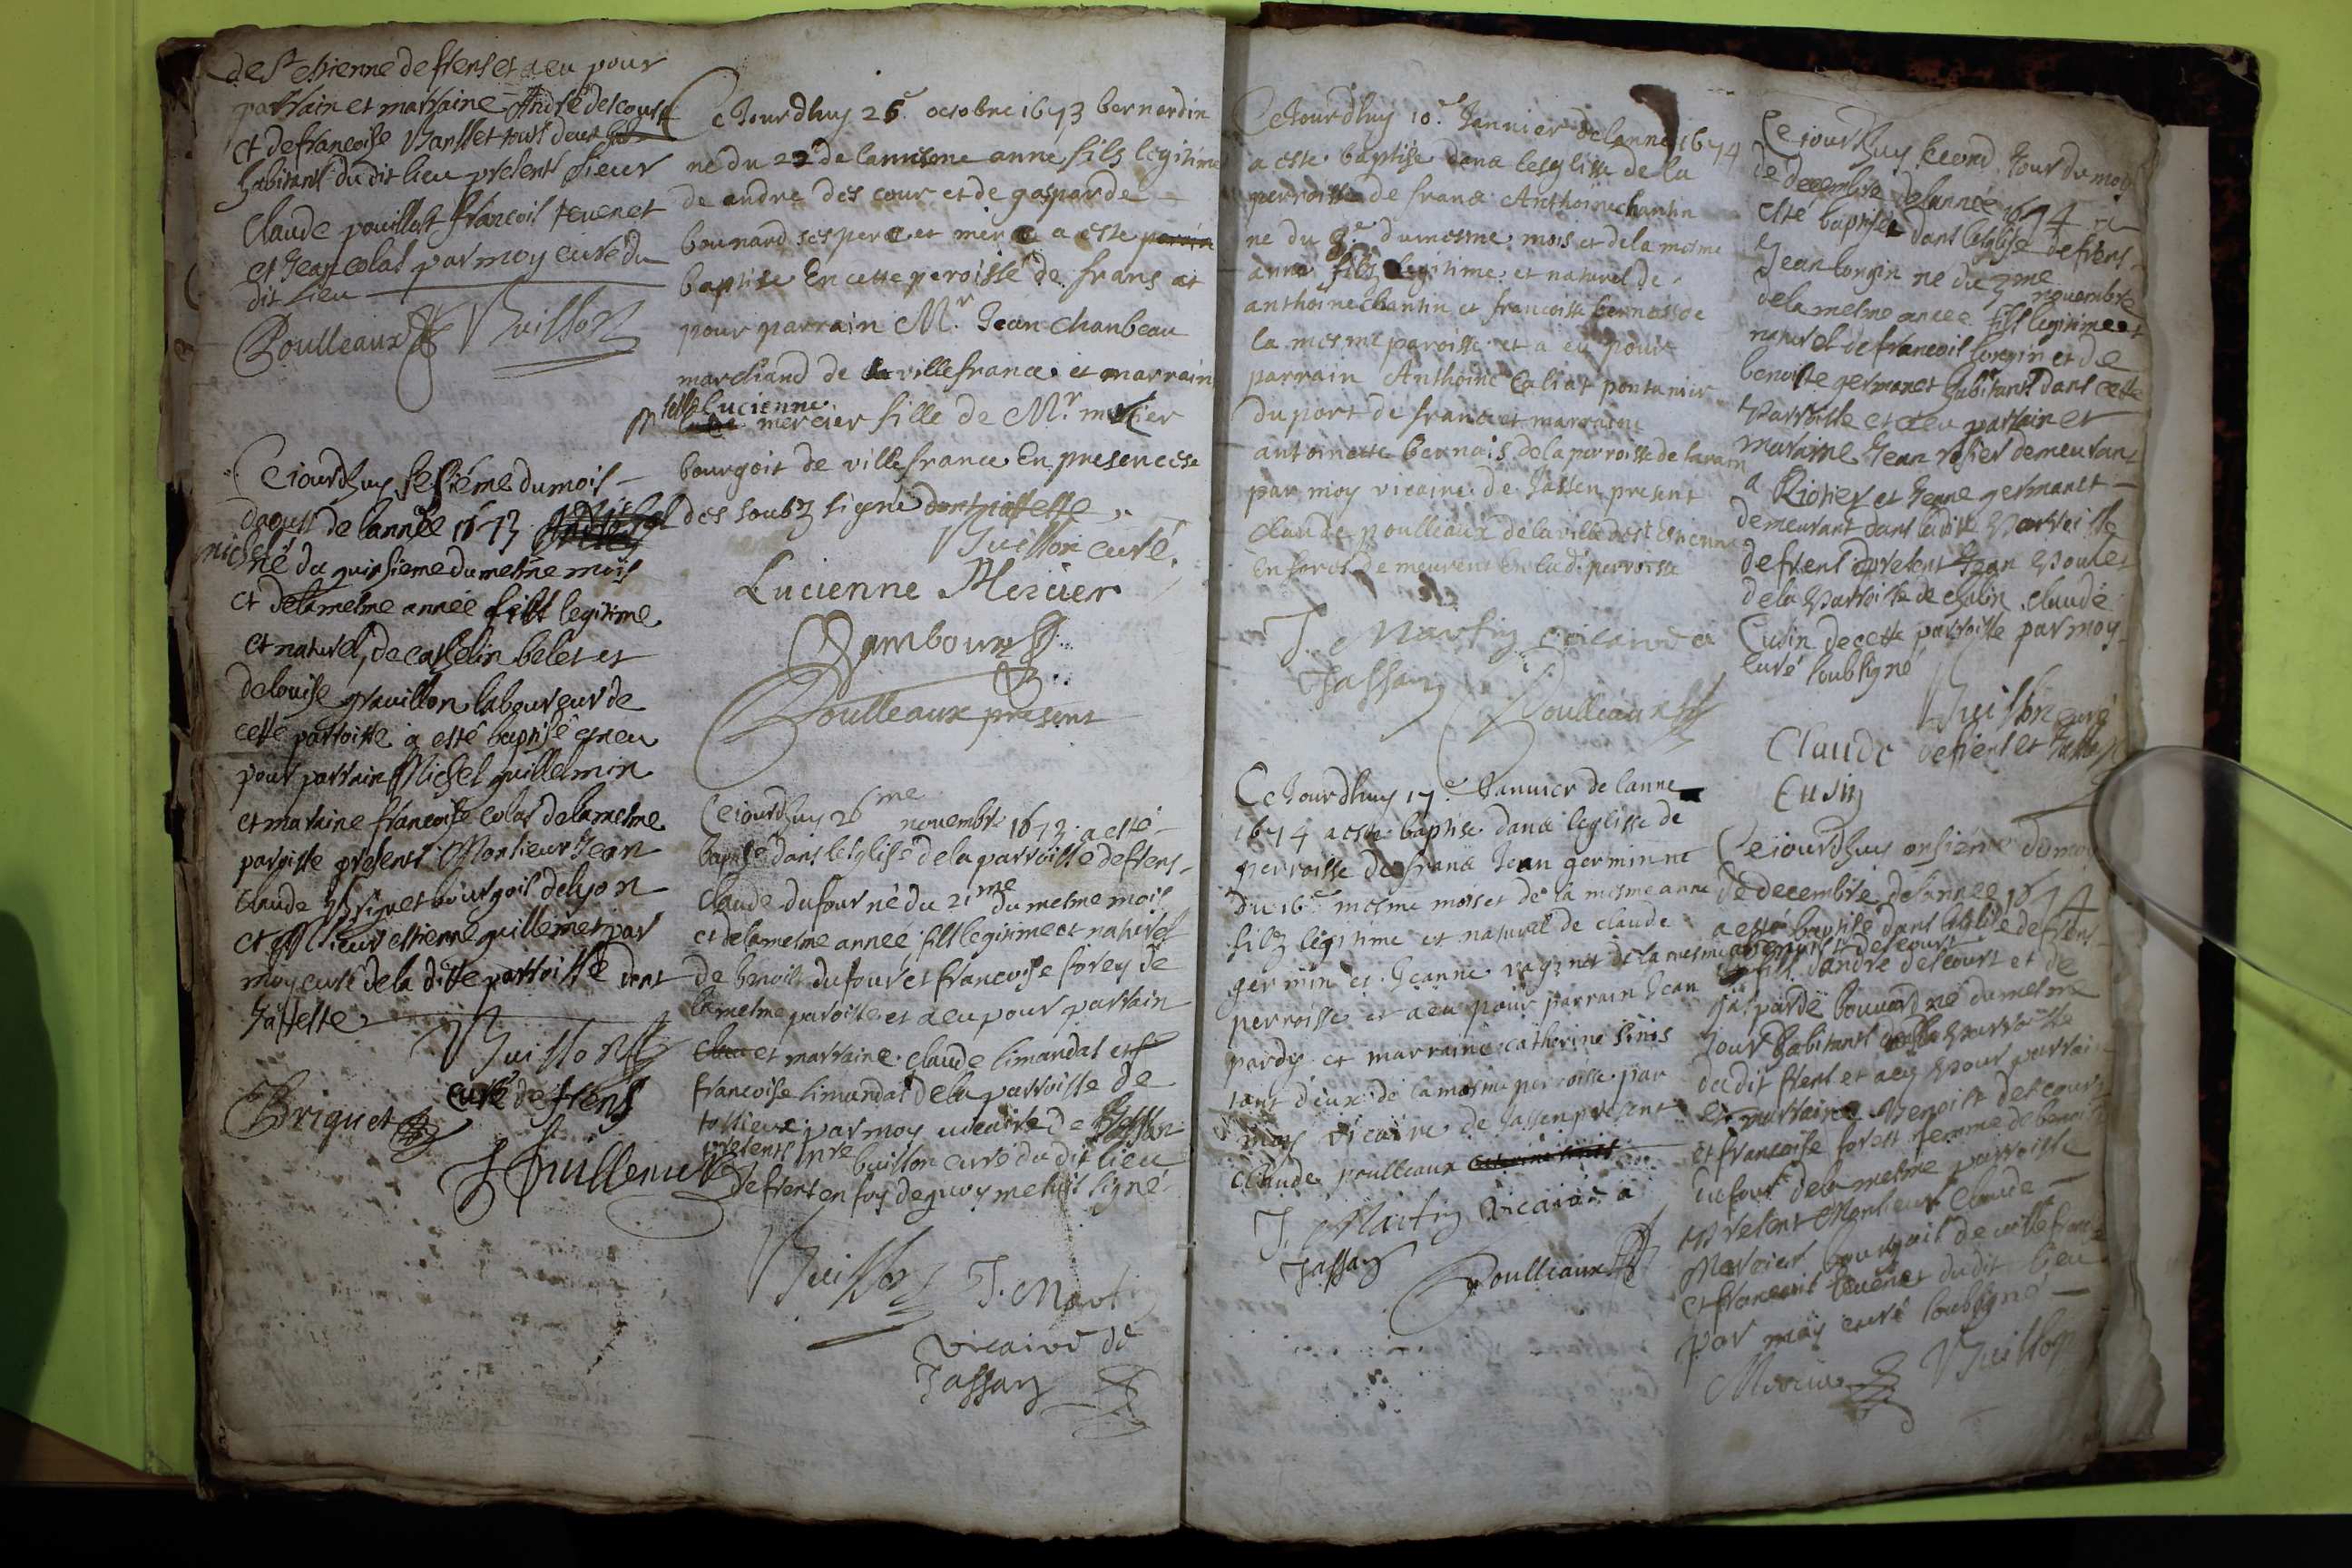 de St estienne de frens et a eu pour
parrain et marraine André descours
et de francoise tous deux
habitants du dit lieu presents sieur
Claude pouillost francois teuenet
et Jean colas par moy curé du
dit lieu
Poulleaux Buisson
Ce iourdhuy sesiéme du mois
daoust de lannée 1673
michel né du quinsieme du mesme mois
et de la mesme année fils legitime
et naturel de cathelin belet et
de louise grauillon laboureur de
cette parroisse a esté baptisé et a eu
pour parrain Michel guillermin
et maraine francoise colas de la mesme
paroisse presents Monsieur Jean
Claude Briguet bourgois de lyon
et sieur estienne guillemet par
moy curé de la ditte parroisse dont
Jatteste
Buisson
curé de frens
Briguet
Guillemet
Ce Jourdhuy 25e octobre 1673 bernardin
né du 22e de la mesme anné fils legitime
de andre des cour et de gasparde
bounard ses pere et mere a este parain
baptise En cette peroisse de frans at
pour parrain Mr. Jean chanbeau
marchand de villefrance et marraine
selle Lucienne
mercier fille de Mr mercier
bourgoit de villefrance En presence
des soubz signé dont jatteste
Buisson curé
Lucienne Mercier
Jambour
Poulleaux present
Ce iourdhuy 26me nouembre 1673 a esté
baptisé dans lesglise de la parroisse de frens
Claude dufour né du 21me du mesme mois
et de la mesme année fils legitime et naturel
de benoist dufour et francoise forey de
la mesme paroisse et a eu pour parrain
et marraine claude limandas et
francoise limandas de la parroisse de
tossieux par moy vicaire de Jassan
presents mre buisson curé du dit lieu
de frens en foy de quoy me suis signé
Buisson J. Martin
vicaire de
Jassan
Ce Jourdhuy 10e Januier de lanné 1674
a este baptise dans lesglisse de la
perroisse de frans Anthoine chantin
ne du 8e du mesme mois et de la mesme
anné filz legitime et naturel de
anthoine chantin et francoisse bernais de
la mesme paroisse et a eu pour
parrain Anthoine Caliat pontanier
du port de frans et marraine
antoinette bernais de la perroisse de
par moy vicaire de Jassen present
Claude poulleaux de la ville de st Etienne
En forest demeurent En lad. perroisse
J. Martin vicaire a
Jassan Poulleaux
Ce Jourdhuy 17e Januier de lanne
1674 a este baptise dans leglisse de
perroisse de frans Jean germin ne
du 16e mesme mois et de la mesme anne
filz legitime et naturel de claude
germin et Jeanne de la mesme
perroisse et a eu pour parrain Jean
pardy et marraine catherine sinis
tout deux de la mesme perroisse par
moy vicaire de Jassen present
Claude poulleaux
J. Martin vicaire a
Jassan Poulleaux
Ce iourdhuy second Jour du mois
de decembre de lannée 1674 a
esté baptisé dans lesglise de frens
Jean longin né du 3me nouembre
de la mesme année fils legitime et
naturel de francois longin et de
benoiste germanet habitants dans cette
Parroisse et a eu parrain et
maraine Jean rosier demeurant
a Riotier et Jeane germanet
demeurant dans ladite Parroisse
de frens present Jean Poulet
de la Parroisse de chalin claude
Cusin de cette parroisse par moy
curé soubsigné
Buisson curé
Claude de frens et Jassan
Cusin
Ce iourdhuy onsiéme du mois
de decembre de lannée 1674
a esté baptisé dans lesglise de frens
benoist descours
fils dandré descours et de
gasparde bounard né du mesme
Jour habitants de la Parroisse
du dit frens et a eu Pour parrain
et marraine Benoist descours
et francoise forest femme de benoist
dufour de la mesme parroisse
present Monsieur Claude
Mercier bourgois de villefranche
et francois teuenet du dit lieu
par moy curé soubsigné
Mercier Buisson